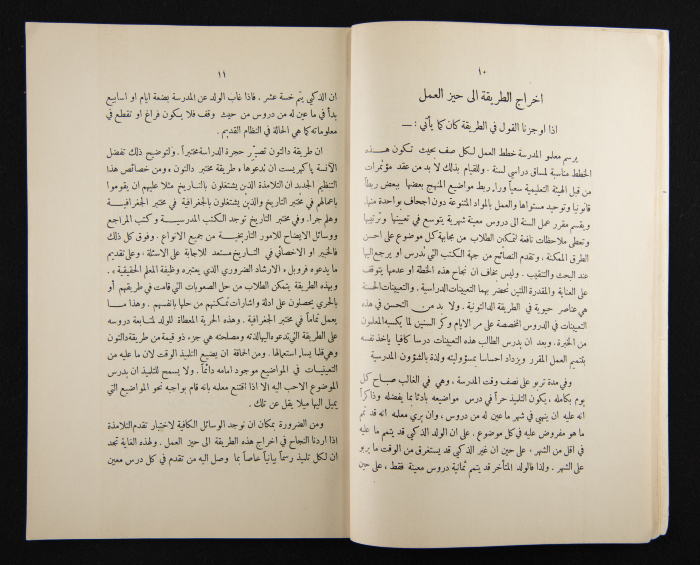 ١٠
اخراج الطريقة الى حيز العمل
اذا اوجزنا القول في الطريقة كان كما يأتي : —
يرسم معلمو المدرسة خطط العمل لكل صف بحيث تكون هذه
الخطط مناسبة لمساق دراسي لسنة . وللقيام بذلك لا بد من عقد مؤتمرات
من قبل الهيئة التعليمية سعياً وراء ربط مواضيع المنهج بعضها ببعض ربطاً
قانونياً وتوحيد مستواها والعمل بالمواد المتنوعة دون اجحاف بواحدة منها.
ويقسم مقرر عمل السنة الى دروس معينة شهرية يتوسع في تعيينها وترتيبها
وتعطى ملاحظات نافعة لتمكين الطلاب من مجابهة كل موضوع على احسن
الطرق الممكنة . وتقدم النصائح من جهة الكتب التي تدرس او يرجع اليها
عند البحث والتنقيب . وليس يخاف ان نجاح هذه الخطة او عدمها يتوقف
على العناية والمقدرة اللتين تحضر بهما التعيينات الدراسية . والتعيينات الحسنة
هي عناصر حيوية في الطريقة الدالتونية . ولا بد من التحسن في هذه
التعيينات في الدروس المخصصة على مر الايام وكر السنين لما يكسبه المعلمون
من الخبرة . وبعد ان يدرس الطالب هذه التعيينات درسا كافيا يأخذ نفسه
بتتميم العمل المقرر ويزداد احساسا بمسؤوليته ولذة بالشؤون المدرسية
وفي مدة تربو على نصف وقت المدرسة ، وهي في الغالب صباح كل
يوم بكامله ، يكون التلميذ حراً في درس مواضيعه بادئا بما يفضله وذاكراً
انه عليه ان ينهي في شهر ما عين له من دروس ، وان يري معلمه انه قد تمم
ما هو مفروض عليه في كل موضوع . على ان الولد الذكي قد يتمم ما عليه
في اقل من الشهر ، على حين ان غير الذكي قد يستغرق من الوقت ما يربو
على الشهر . ولذا فالولد المتأخر قد يتمم ثمانية دروس معينة فقط ، على حين
١١
ان الذكي يتم خمسة عشر . فاذا غاب الولد عن المدرسة بضعة ايام او اسابيع
بدأ في ما عين له من دروس من حيث وقف فلا يكون فراغ او تقطع في
معلوماته كما هي الحالة في النظام القديم .
ان طريقة دالتون تصير حجرة الدراسة مختبراً . ولتوضيح ذلك تفضل
الآنسة باكهرست ان ندعوها ، طريقة مختبر دالتون . ومن خصائص هذا
التنظيم الجديد ان التلامذة الذين يشتغلون بالتاريخ مثلا عليهم ان يقوموا
باعمالهم في مختبر التاريخ والذين يشتغلون بالجغرافية في مختبر الجغرافية
وهلم جرا . وفي مختبر التاريخ توجد الكتب المدرسية وكتب المراجع
ووسائل الايضاح للامور التاريخية من جميع الانواع . وفوق كل ذلك
فالخبير او الاخصائي في التاريخ مستعد للاجابة على الاسئلة ، وعلى تقديم
ما يدعوه فروبل « الارشاد الضروري الذي يعتبره وظيفة المعلم الحقيقية » .
وبهذه الطريقة يتمكن الطلاب من حل الصعوبات التي قامت في طريقهم أو
بالحري يحصلون على ادلة واشارات تمكنهم من حلها بانفسهم . وهذا ما
يعمل تماماً في مختبر الجغرافية . وهذه الحرية المعطاة للولد لمتابعة دروسه
على الطريقة التي تدعوه اليها لذته ومصلحته هي جزء ذو قيمة من طريقة دالتون
وهي قلما يساء استعمالها . ومن الحماقة ان يضيع التلميذ الوقت لان ما عليه من
التعيينات في المواضيع موجود امامه دائماً . ولا يسمح للتلميذ ان يدرس
الموضوع الاحب اليه الا اذا اقتنع معلمه بانه قام بواجبه نحو المواضيع التي
يميل اليها ميلا يقل عن تلك .
ومن الضرورة بمكان ان توجد الوسائل الكافية لاختبار تقدم التلامذة
اذا اردنا النجاح في اخراج هذه الطريقة الى حيز العمل . ولهذه الغاية تجد
ان لكل تلميذ رسماً بيانياً خاصاً بما وصل اليه من تقدم في كل درس معين